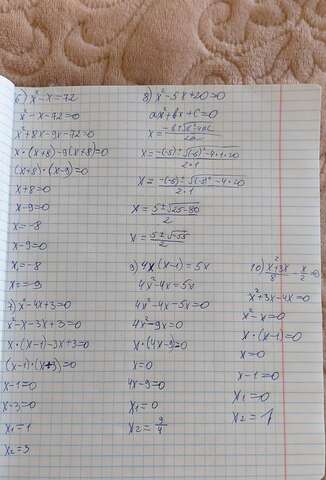 6) x²-x=72
x²-x-72=0
x²+8x-9x-72=0
x·(x+8)-9(x+8)=0
(x+8)·(x-9)=0
x+8=0
x-9=0
x=-8
x-9=0
x₁=-8
x₂=-9
7) x²-4x+3=0
x²-x-3x+3=0
x·(x-1)-3x+3=0
(x-1)·(x-3)=0
x-1=0
x-3=0
x₁=1
x₂=3
8) x²-5x+20=0
ax²+bx+c=0
x=-b±√b²-4ac/2a
x=-(-5)±√(-5)²-4·1·20/2·1
x=-(-5)±√(-5)²-4·20/2·1
x=5±√25-80/2
x=5±√-55/2
9) 4x(x-1)=5x
4x²-4x=5x
4x²-4x-5x=0
4x²-9x=0
x·(4x-9)=0
x=0
4x-9=0
x₁=0
x₂=9/4
10) x²+3x/8-x/2=0
x²+3x-4x=0
x²-x=0
x·(x-1)=0
x=0
x-1=0
x₁=0
x₂=1